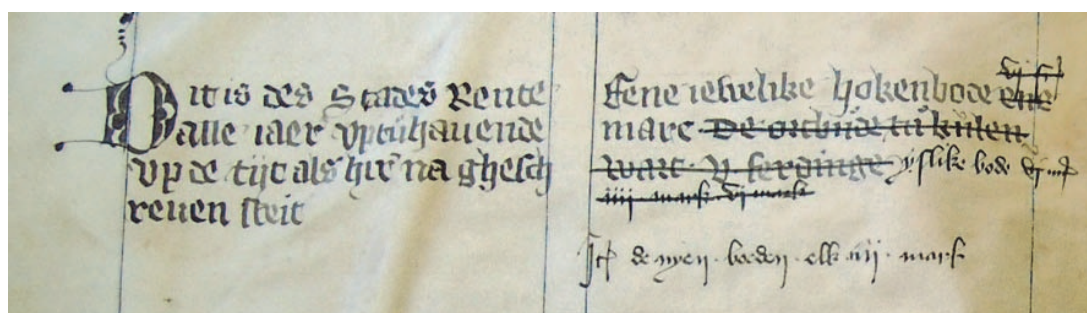 Dit is des Stades Rente
alle iaer vptuhauende
vp de tijt als hir na ghesch
reuen steit
Eene iewelike hokenbode ene
marc De ortbude tu kulen
wart v ferdinge yslike bode vj mr
iiij mark vj mark
Jtem de nyen boeden elk iiij mark